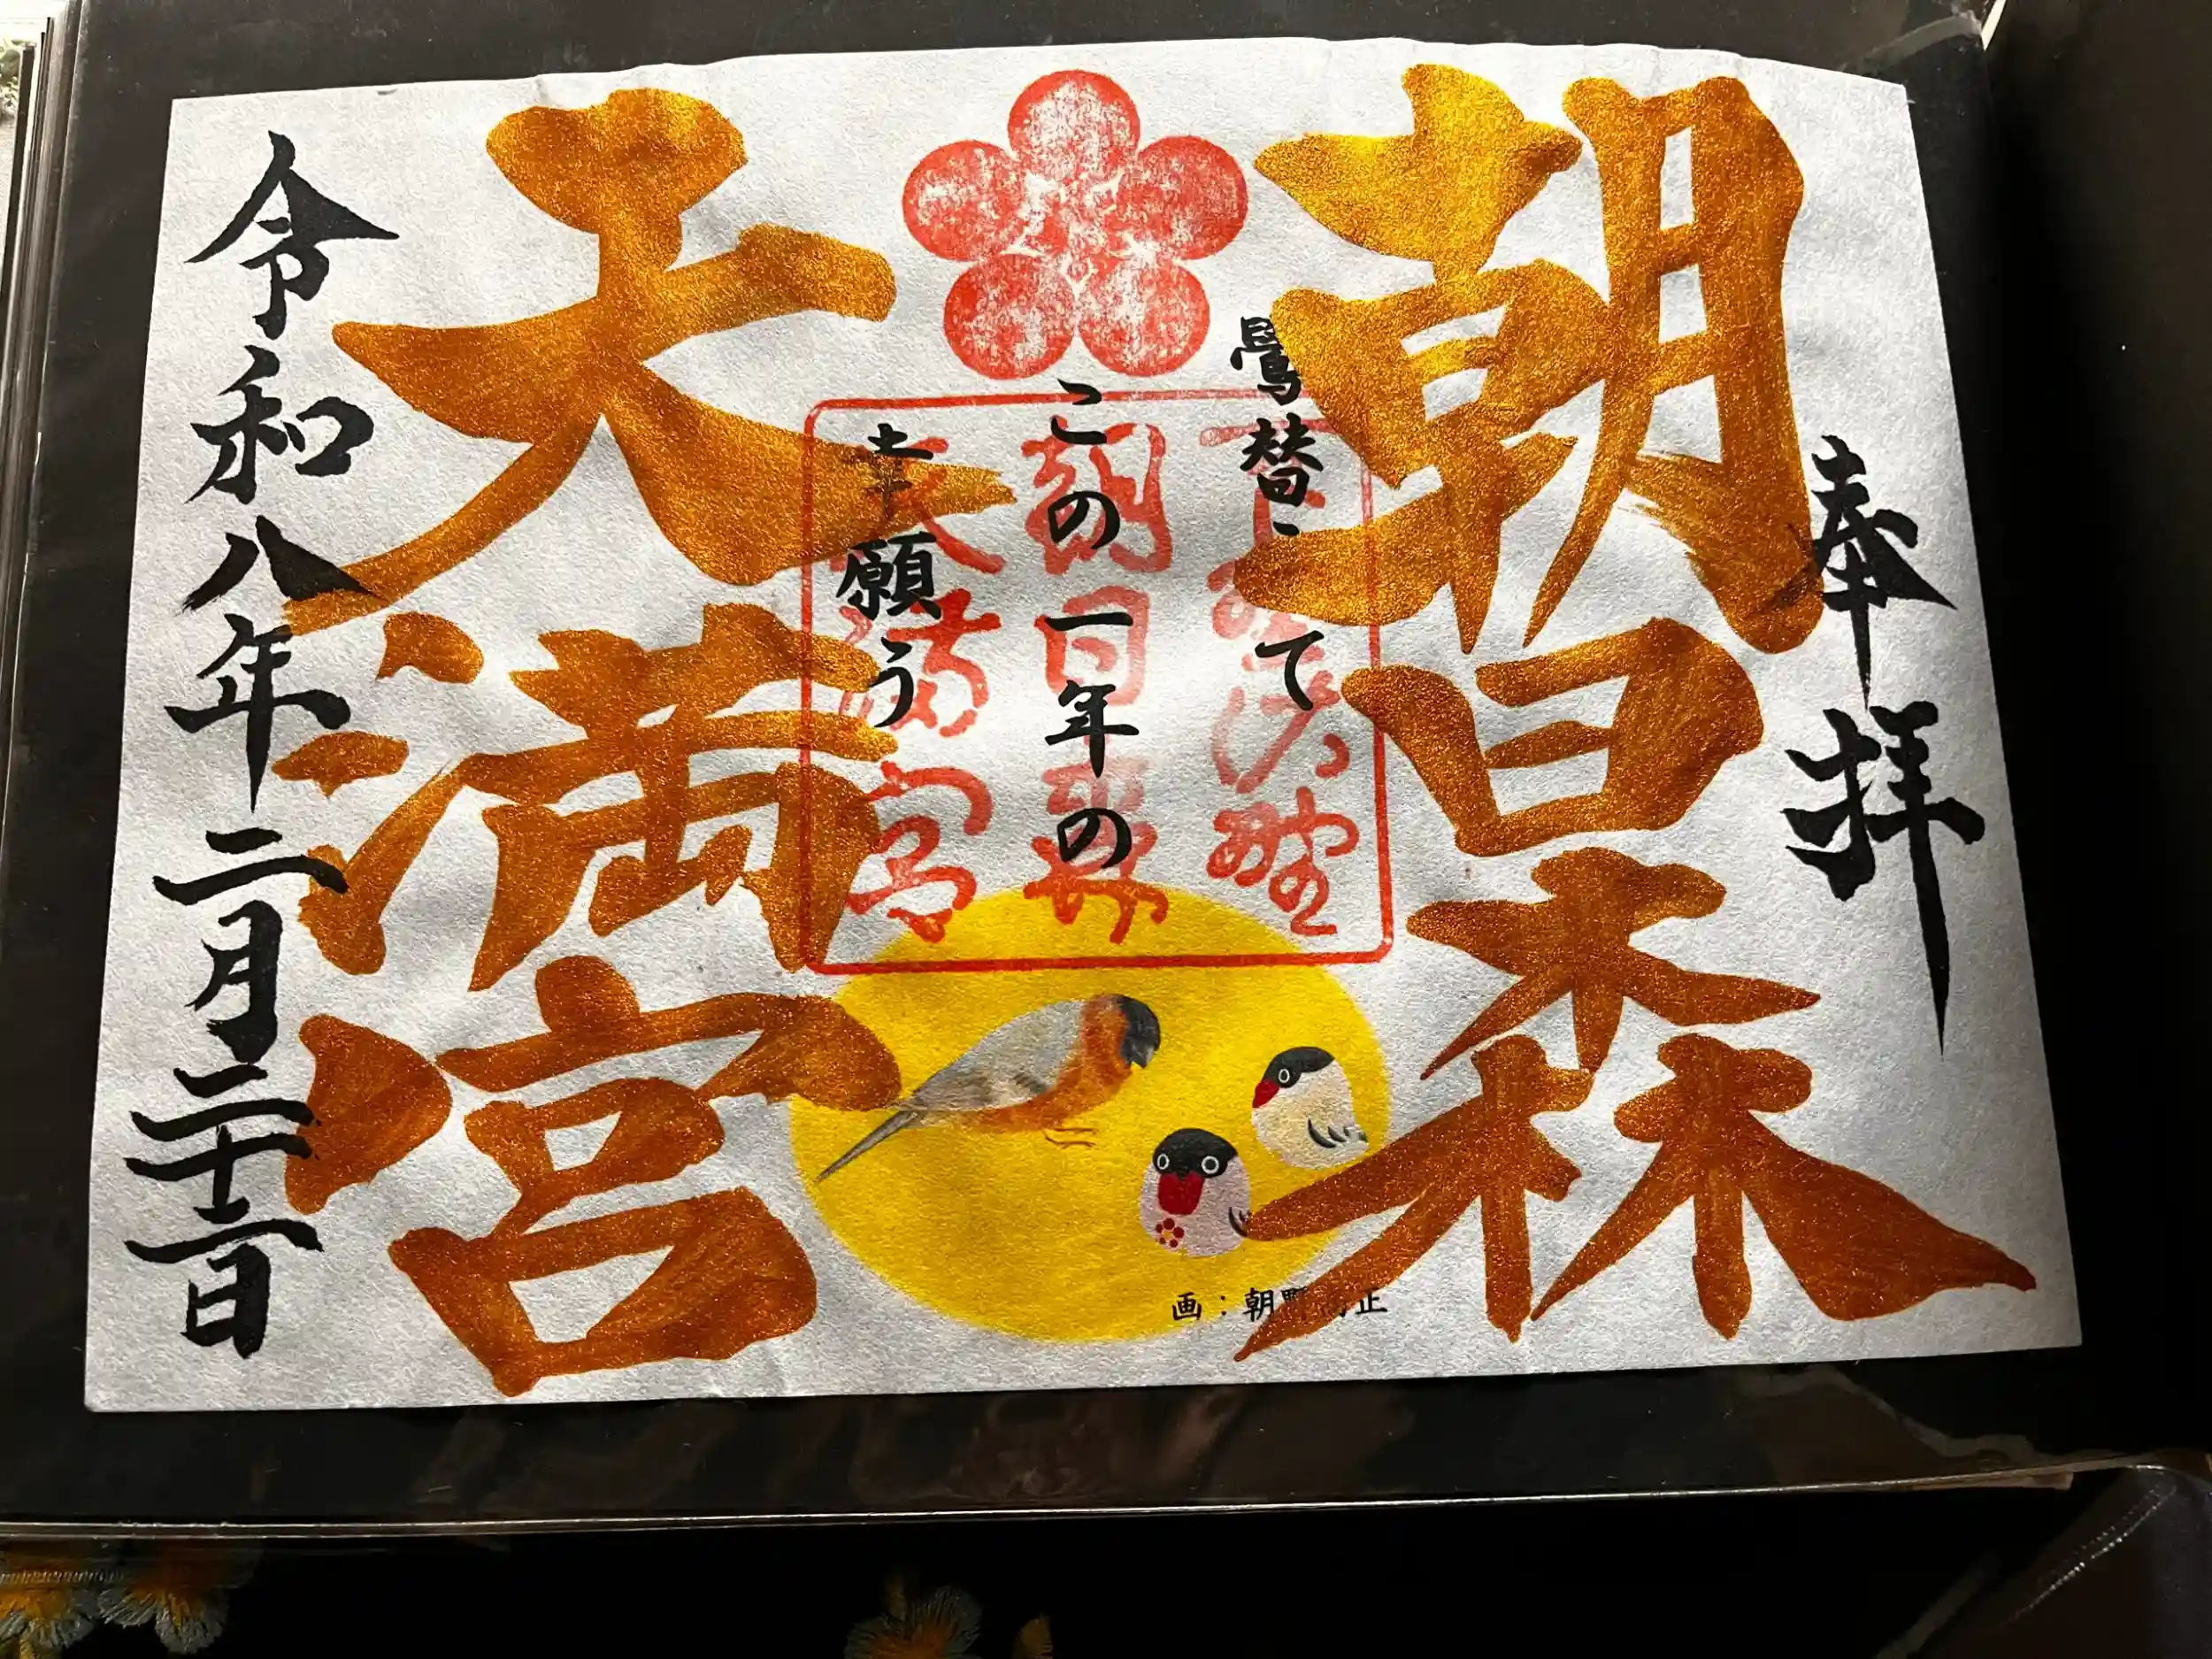 奉拝
朝日森
天満宮
鷽替えて
この一年の
幸願う
朝日森
天満宮
令和八年二月二十二日
画：朝野